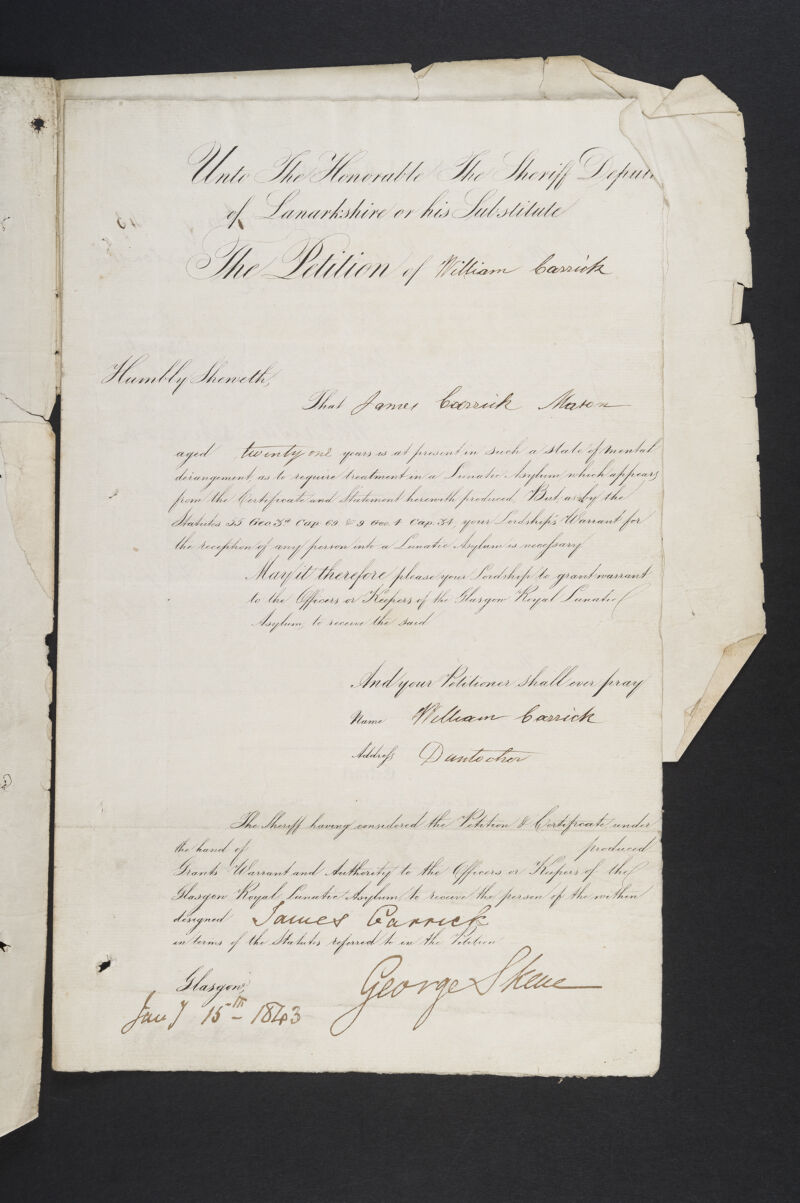 Unto The Honorable The Sheriff Depute
of Lanarkshire or his Substitute
The Petition of William Carrick
Humbly Sheweth,
That James Carrick Mason
aged twenty one years is at present in such a state of mental
derangement, as to require treatment in a Lunatic Asylum, which appears
from the Certificate and Statement herewith produced. But, as by the
Statutes 55 Geo. 3d Cap. 69 & 9 Geo. 4 Cap. 34, your Lordship's Warrant for
the reception of any person into a Lunatic Asylum is necessary
May it therefore please your Lordship to grant warrant
to the Officers or Keepers of the Glasgow Royal Lunatic
Asylum, to receive the said
And your Petitioner shall ever pray
Name William Carrick
Address Duntocher
The Sheriff having considered the Petition & Certificate, under
the hand of produced
Grants Warrant and Authority to the Officers or Keepers of the
Glasgow Royal Lunatic Asylum to receive the person of the within
designed James Carrick
in terms of the Statutes referred to in the Petition
Glasgow,
George Skene
Jany 15th 1843